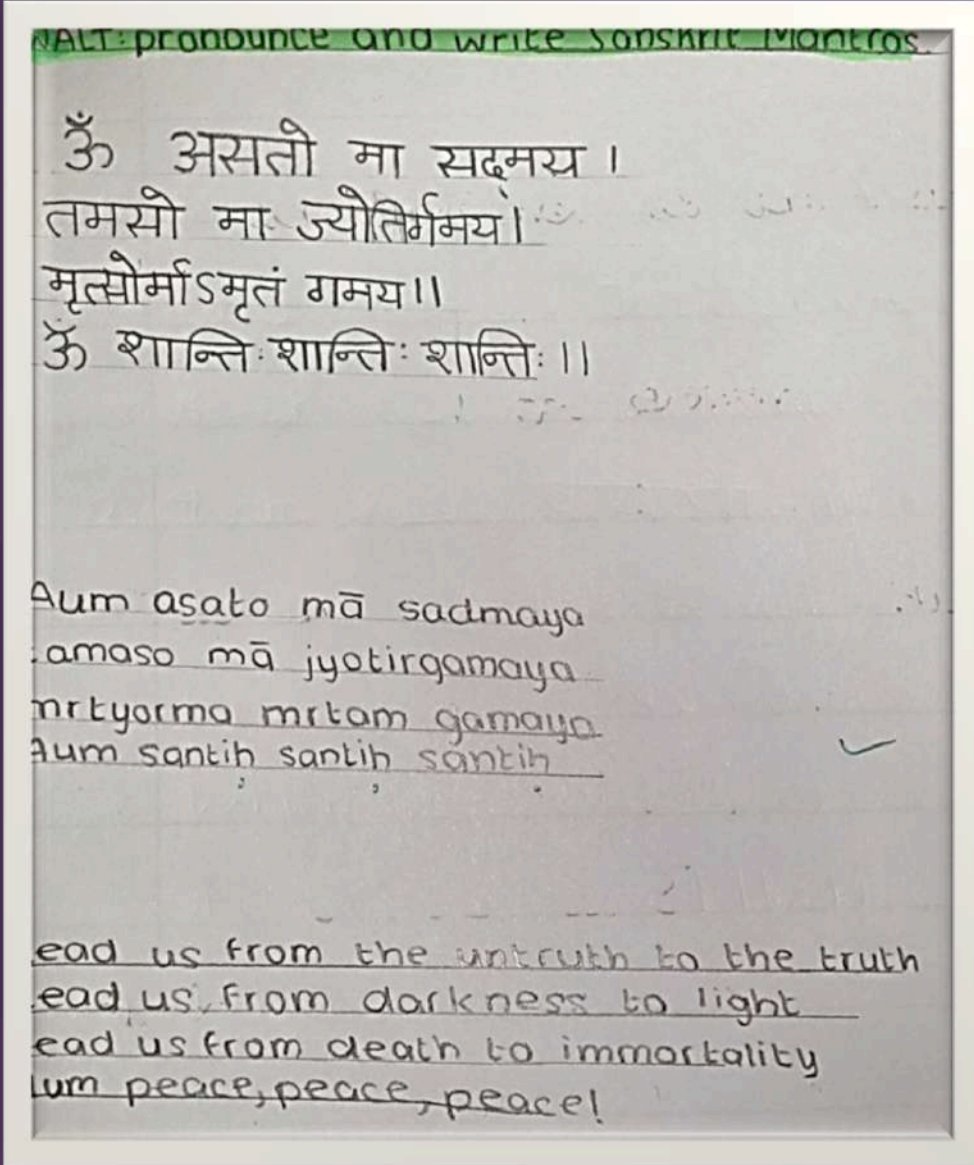 WALT: pronounce and write Sanskrit Mantras.
ॐ असतो मा सद्मय ।
तमसो मा ज्योतिर्गमय।
मृत्योर्माऽमृतं गमय।।
ॐ शान्तिः शान्तिः शान्तिः ।।
Aum asato mā sadmaya
amaso mā jyotirgamaya
mrtyorma mrtam gamaya
Aum santih santih santih
ead us from the untruth to the truth
ead us from darkness to light
ead us from death to immortality
um peace, peace, peace!